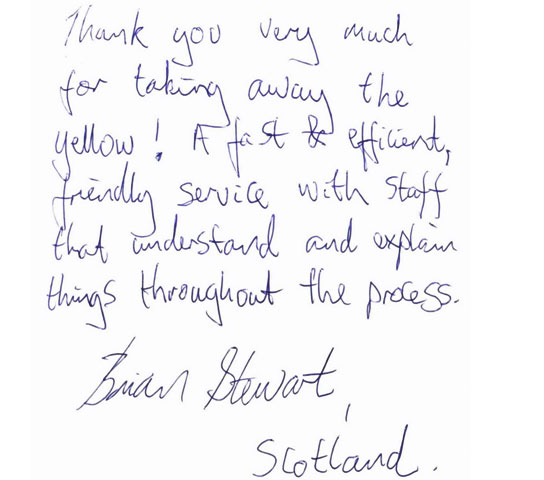 Thank you very much
for taking away the
yellow! A fast & efficient,
friendly service with staff
that understand and explain
things throughout the process.
Brian Stewart,
Scotland.